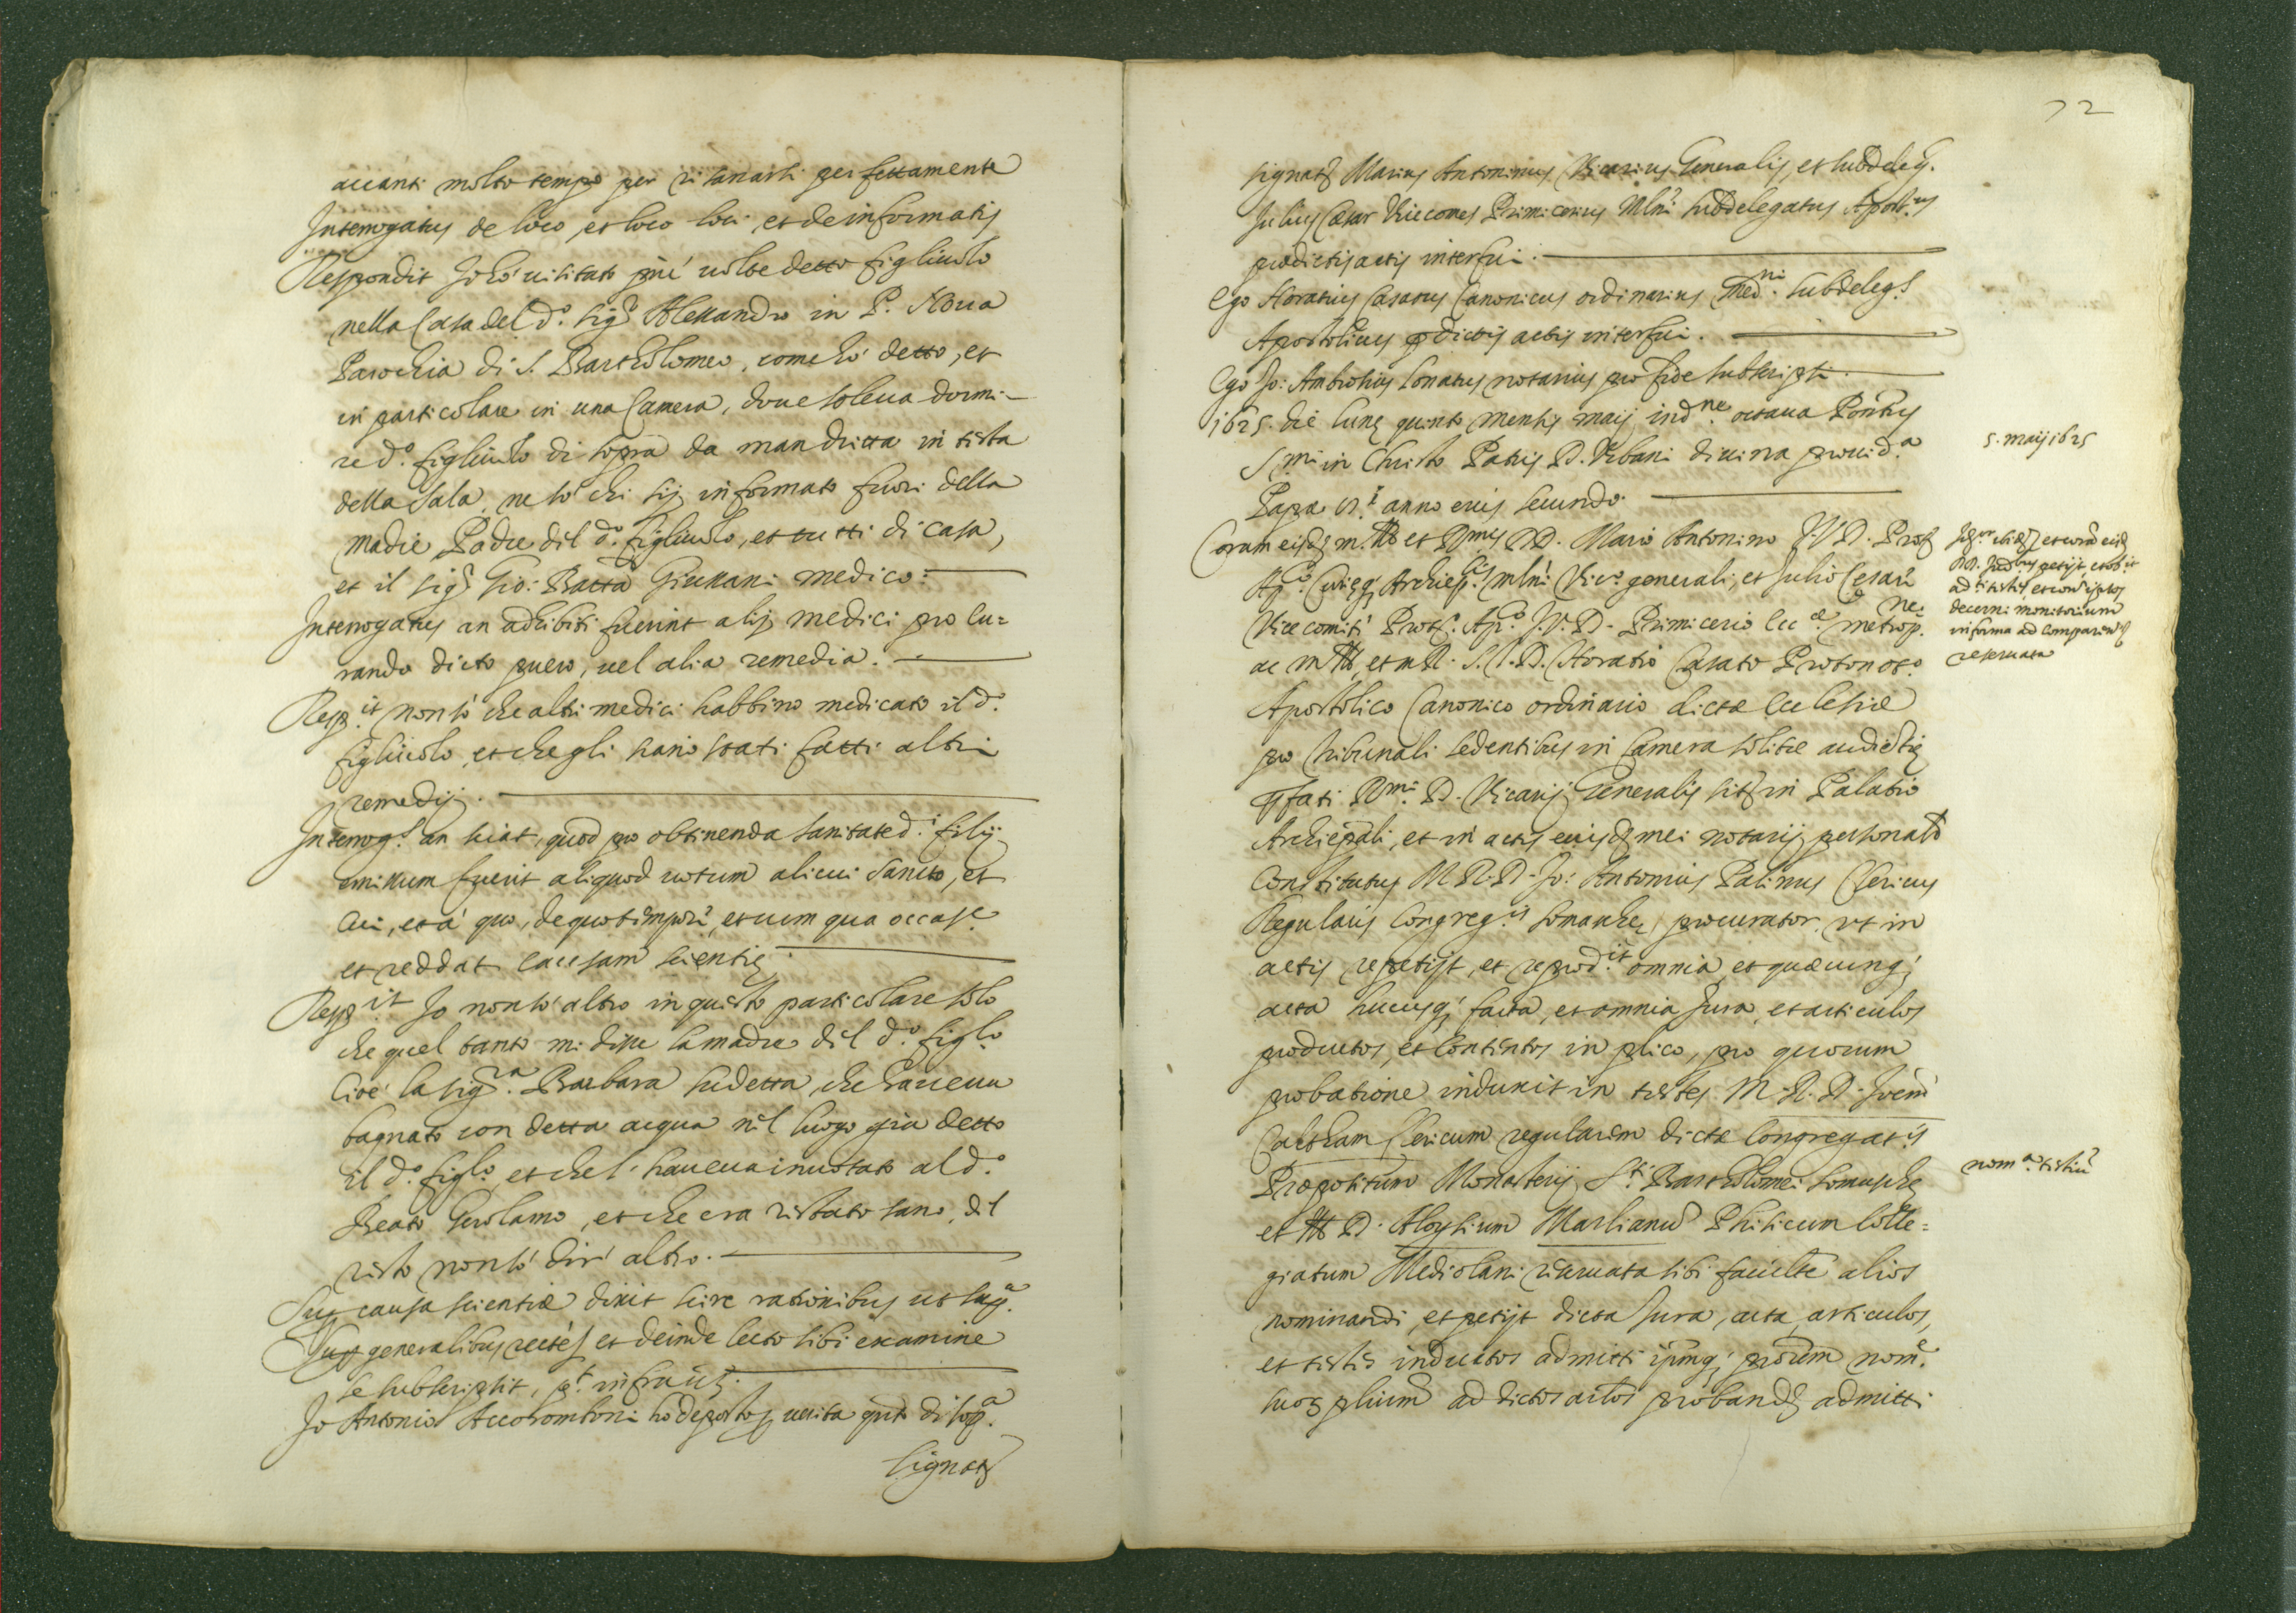 auanti molto tempo per risanarsi perfettamente
Interrogatus de loco, et loco loci, et de informatis
Respondit Io hò uisitato più uolte detto figliuolo
nella Casa del d.º sig.r Alessandro in P. Noua
Parochia di S. Bartholomeo, come hò detto, et
in particolare in una Camera, doue soleua dormi-
re d.º figliuolo di sopra da mandritta in testa
della sala, ne sò chi sij informato fuori della
madre, Padre dil d.º figliuolo, et tutti di casa,
et il sig.r Gio: Batta Giussani medico:
Interrogatus an adhibiti fuerint alij medici pro cu=
rando dicto puero, uel alia remedia.
Resp.it non sò che altri medici habbino medicato il d.º
figliuolo, et che gli siano stati fatti altri
remedij.
Interrog.s an sciat, quod pro obtinenda sanitate d.i filij
emissum fuerit aliquod uotum alicui Sancto, et
cui, et à quo, de quo tempore, et cum qua occas.e
et reddat causam scientię
Resp.it Io non sò altro in questo particolare solo
che quel tanto mi disse la madre dil d.º figl.º
cioè la sig.ra Barbara sudetta, che haueua
bagnato con detta acqua nel luogo già detto
il d.º figl.º, et che l'haueua inuotato al d.º
Beato Gerolamo, et che era restato sano, del
resto non sò dire altro.
Suę causa scientiæ dixit scire rationibus ut sup.a
Sup generalibus recte et deinde lecto sibi examine
se subscripsit, pt infra uiz.
Io Antonio Accoramboni ho deposto p uerita qnto di sop.a
Signat
72
signat Marius Antoninus Vicarius Generalis, et subdeleg.
Julius Cæsar Vicecomes Primicerius Mlni subdelegatus Apost.us
predictis actis interfui.
Ego Horatius Casatus Canonicus ordinarius Med.ni subdeleg.s
Apostolicus pdictis actis interfui.
Ego Jo: Ambrosius Conatus notarius pro fide subscripsi.
1625. die lunę quinto mensis maij ind.ne octaua Pontus
S.mi in Christo Patris D. Vrbani diuina prouid.a
Papæ 8.i anno eius secundo.
5. maij 1625
Coram eisd m. Ill et R.mis DD. Mario Antonino J.V.D. Prot
Ap.co Curięq; Archiep.lis mlni Vic.o generali, et Julio Cesare
Vicecomiti Prot. Ap.co J.V.D. Primicerio Ecc.æ metrop.ne
ac m Ill, et m R. J.C.D. Horatio Casato Protonot.o
Apostolico Canonico ordinario dictæ Ecclesiæ
decerni monitorium
in forma ad comparend
reseruata
pro tribunali sedentibus in Camera solitæ audietię
pfati R.mi D. Vicarij Generalis sit in Palatio
Archiepali, et in actis eiusd mei notarij personalr
Constitutus M.R.D. Jo: Antonius Palinus Clericus
Regularis Congreg.is Somaschę, procurator ut in
actis repetijt, et reprod.it omnia, et quæcunq;
acta hucusq; facta, et omnia Jura, et articulos
productos, et contentos in plico, pro quorum
probatione induxit in testes M.R.D. Joem
Calcham Clericum regularem dictæ Congregat.is
Præpositum Monasterij S.ti Bartholomei Somaschę
nom.a testiu
et Ill D. Aloysium Marlianu Phisicum Colle=
giatum Mediolani reseruata sibi facultte alios
nominandi, et petijt dicta Jura, acta, articulos,
et testes inductos admitti ipmq; procrem nom.e
suor pliumr ad dictos artlos probandos admitti